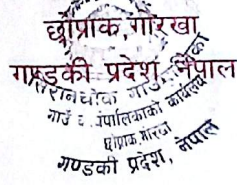 छोप्राक, गोरखा
गण्डकी प्रदेश, नेपाल
गाउँपालिकाको कार्यालय
छोप्राक, गोरखा
गण्डकी प्रदेश, नेपाल